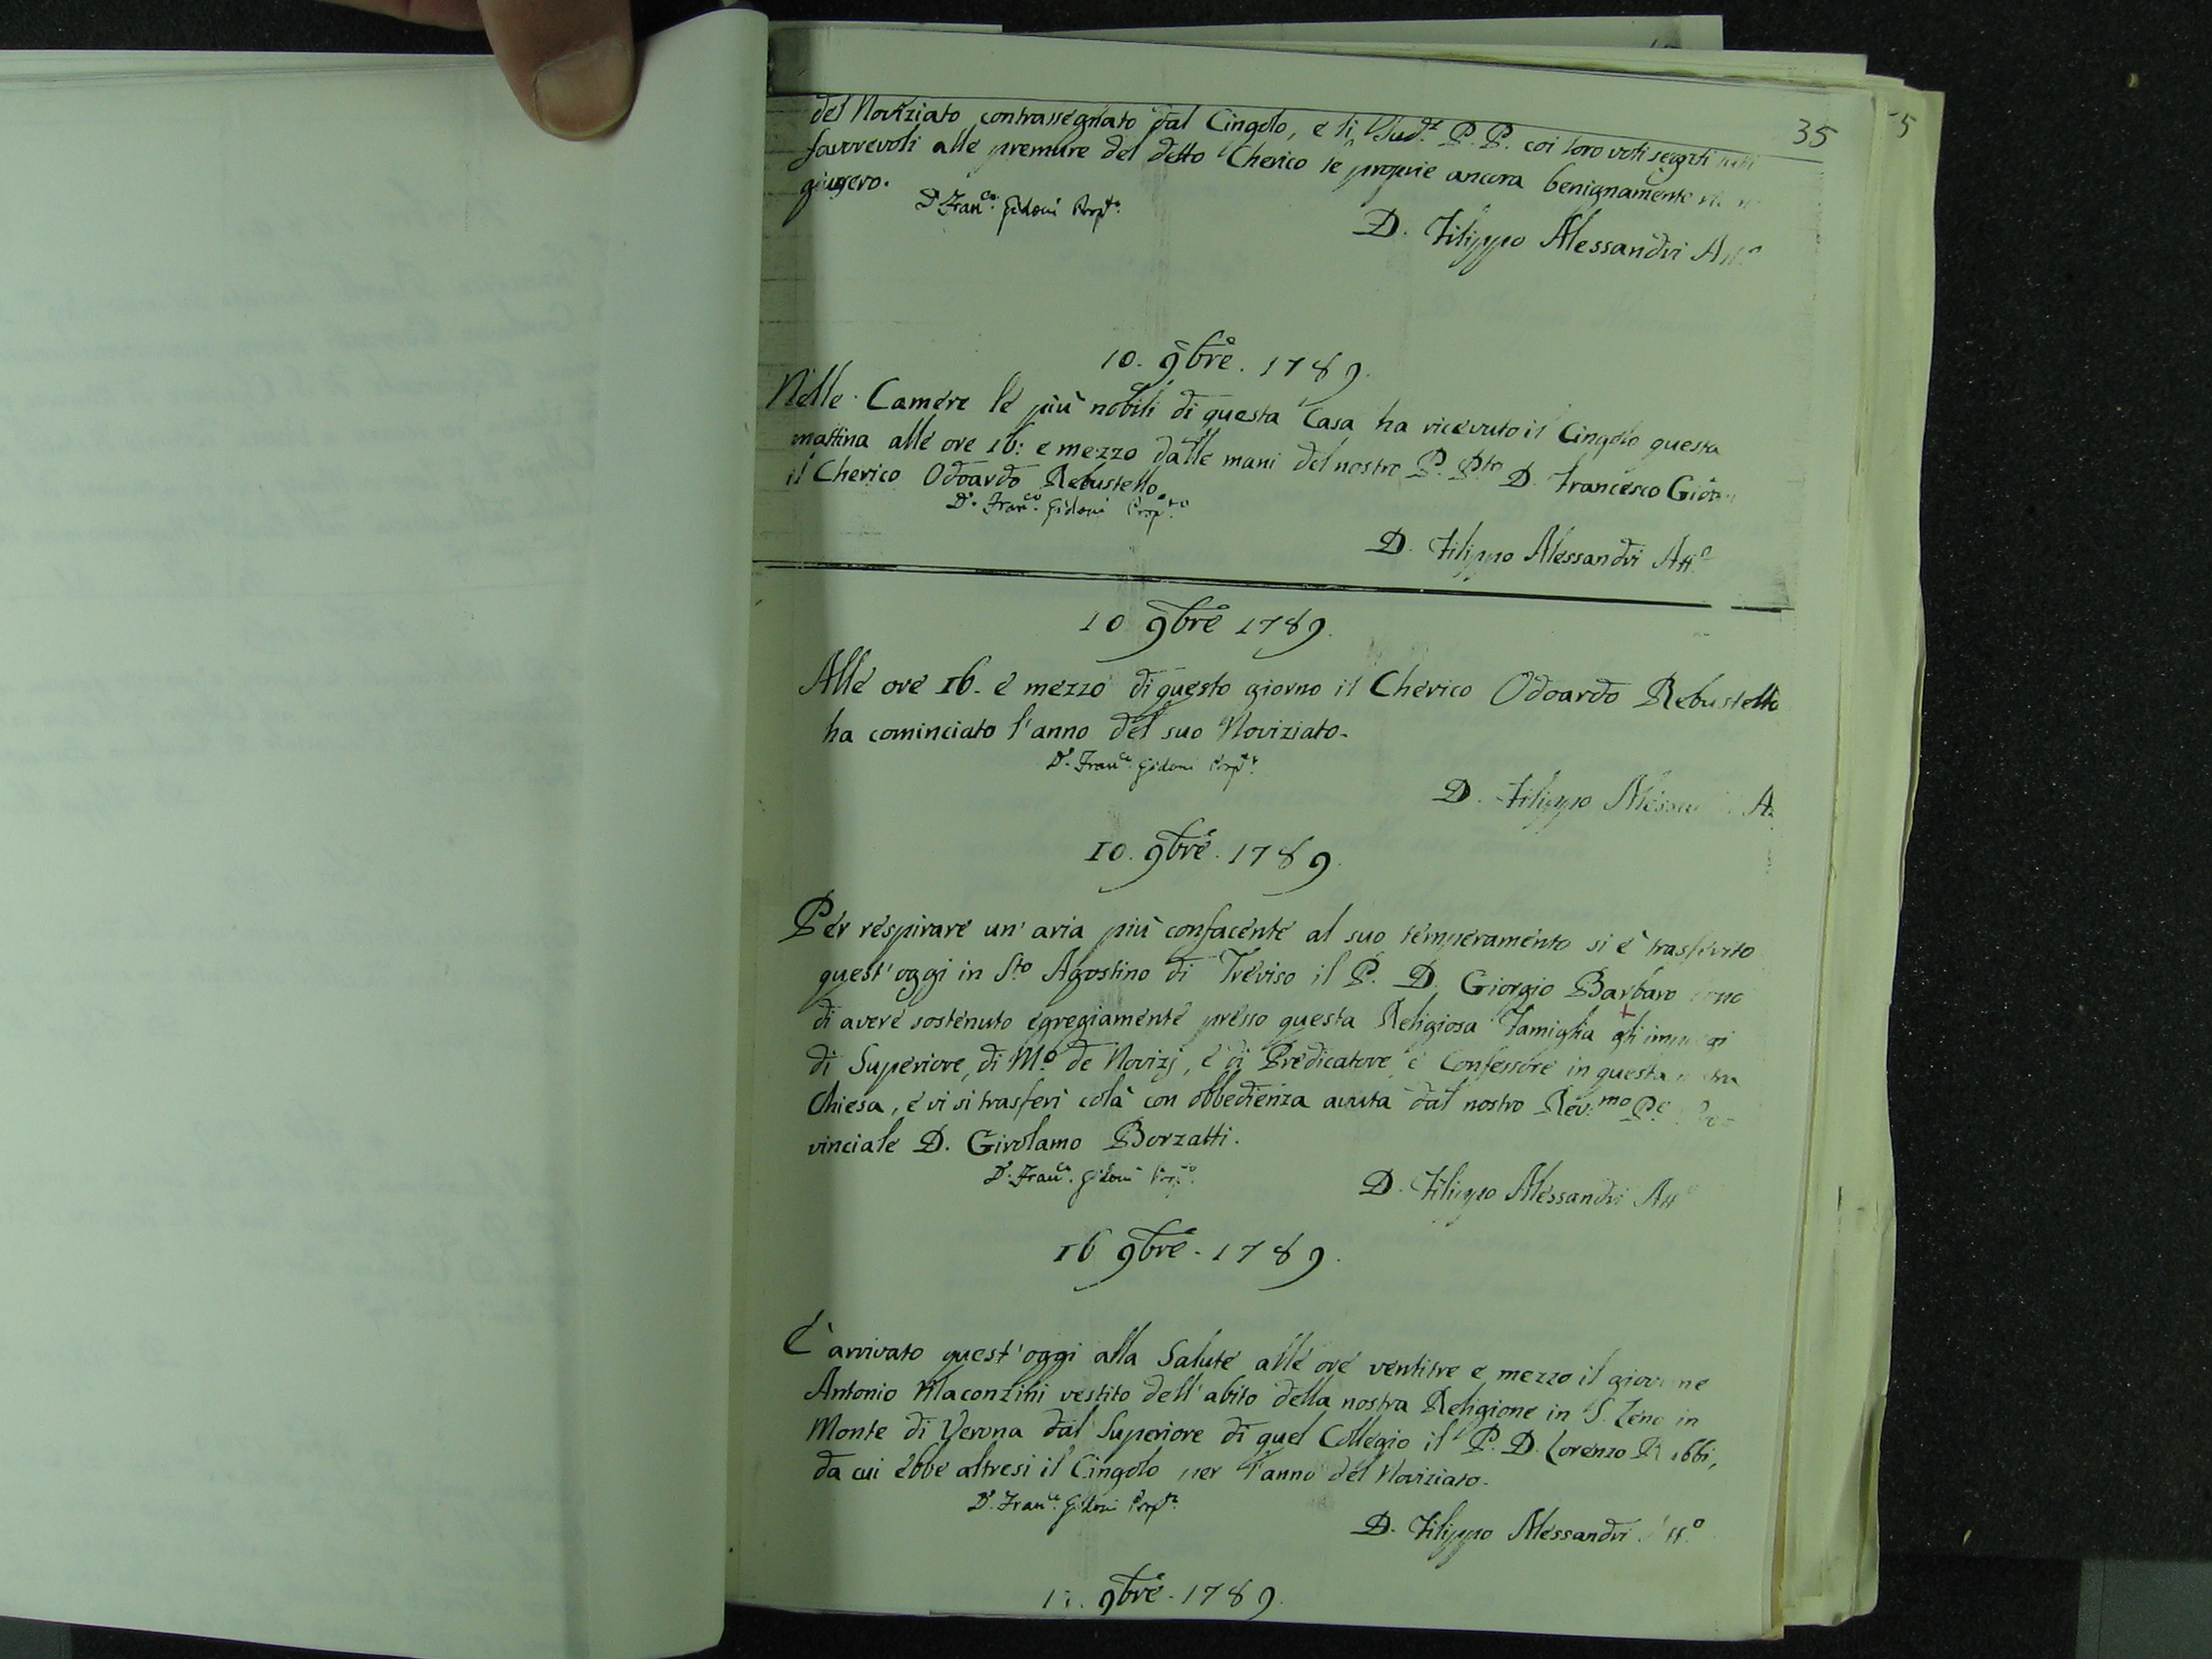 35
del Noviziato contrassegnato dal Cingolo, e li Sud.ti P. P. coi loro voti segreti tutti
favorevoli alle premure del detto Cherico le proprie ancora benignamente
giunsero.
D. Fran.co Gidoni Prop.to
D. Filippo Alessandri Att.o
10. 9bre. 1789.
Nelle Camere le più nobili di questa Casa ha ricevuto il Cingolo questa
mattina alle ore 16: e mezzo dalle mani del nostro P. P.to D. Francesco
il Cherico Odoardo Rebustello.
D. Fran.co Gidoni Prop.to
D. Filippo Alessandri Att.o
10 9bre 1789.
Alle ore 16. e mezzo di questo giorno il Cherico Odoardo Rebustello
ha cominciato l'anno del suo Noviziato.
D. Fran.co Gidoni Prop.to
D. Filippo
10. 9bre. 1789.
Per respirare un' aria più confacente al suo temperamento si è trasferito
quest' oggi in S.to Agostino di Treviso il P. D. Giorgio Barbaro
di avere sostenuto egregiamente presso questa Religiosa Famiglia gli impiegi
di Superiore, di M.o de Novizj, e di Predicatore e Confessore in questa nostra
Chiesa, e vi si trasferì colà con obbedienza avuta dal nostro Rev.mo P.e Pro-
vinciale D. Girolamo Borzatti.
D. Fran.co Gidoni Prop.to
D. Filippo Alessandri Att.o
16 9bre. 1789.
È arrivato quest' oggi alla Salute alle ore ventitre e mezzo il giovane
Antonio vestito dell' abito della nostra Religione in S. Zeno in
Monte di Verona dal Superiore di quel Collegio il P. D. Lorenzo
da cui ebbe altresi il Cingolo per l'anno del Noviziato.
D. Fran.co Gidoni Prop.to
D. Filippo Alessandri Att.o
9bre. 1789.